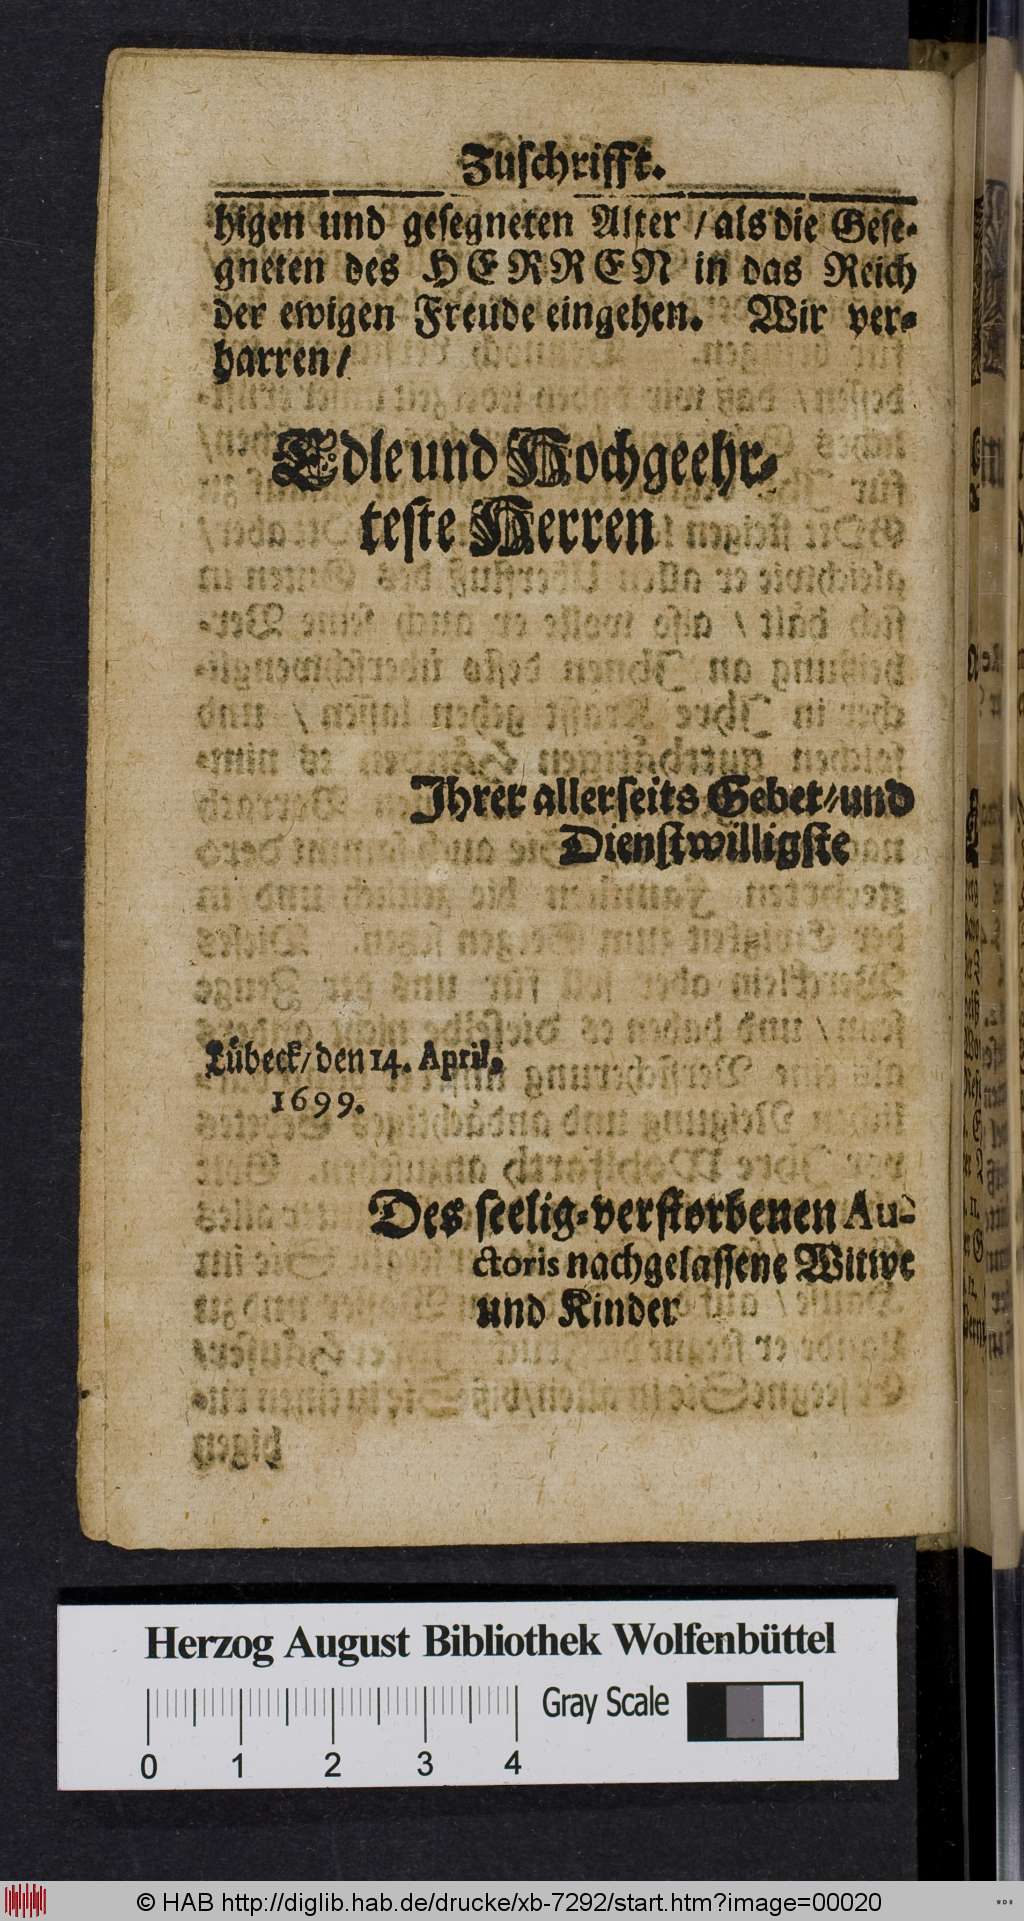 Zuschrifft.
higen und gesegneten Alter / als die Gese-
gneten des HERREN in das Reich
der ewigen Freude eingehen. Wir ver-
harren /
Edle und Hochgeehr-
teste Herren
Ihrer allerseits Gebet- und
Dienstwilligste
Lübeck / den 14. April.
1699.
Des seelig-verstorbenen Au-
ctoris nachgelassene Witwe
und Kinder
Herzog August Bibliothek Wolfenbüttel
Gray Scale
0 1 2 3 4
© HAB http://diglib.hab.de/drucke/xb-7292/start.htm?image=00020